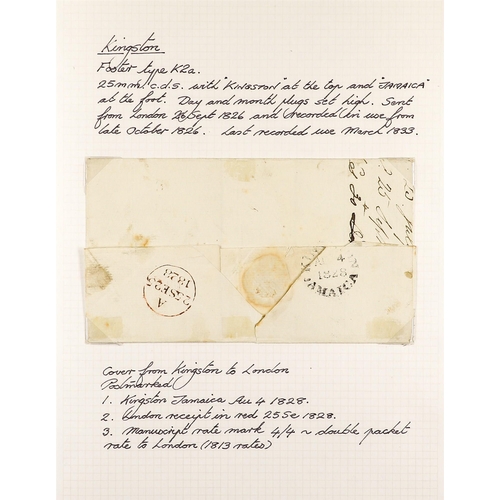 Kingston
Foster type K2a.
25mm c.d.s. with "KINGSTON" at the top and "JAMAICA"
at the foot. Day and month plugs set high. Sent
from London 26 Sept 1826 and recorded in use from
late October 1826. Last recorded use March 1833.
A
25SE25
1828
AU 4
1828
JAMAICA
Cover from Kingston to London
Postmarked
1. Kingston Jamaica Au 4 1828.
2. London receipt in red 25 Se 1828.
3. Manuscript rate mark 4/4 ~ double packet
rate to London (1813 rates)